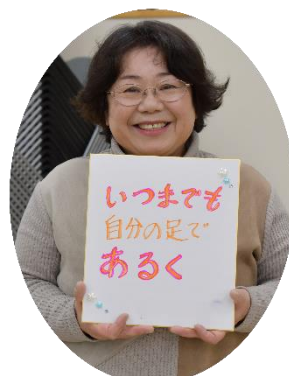 いつまでも
自分の足で
あるく